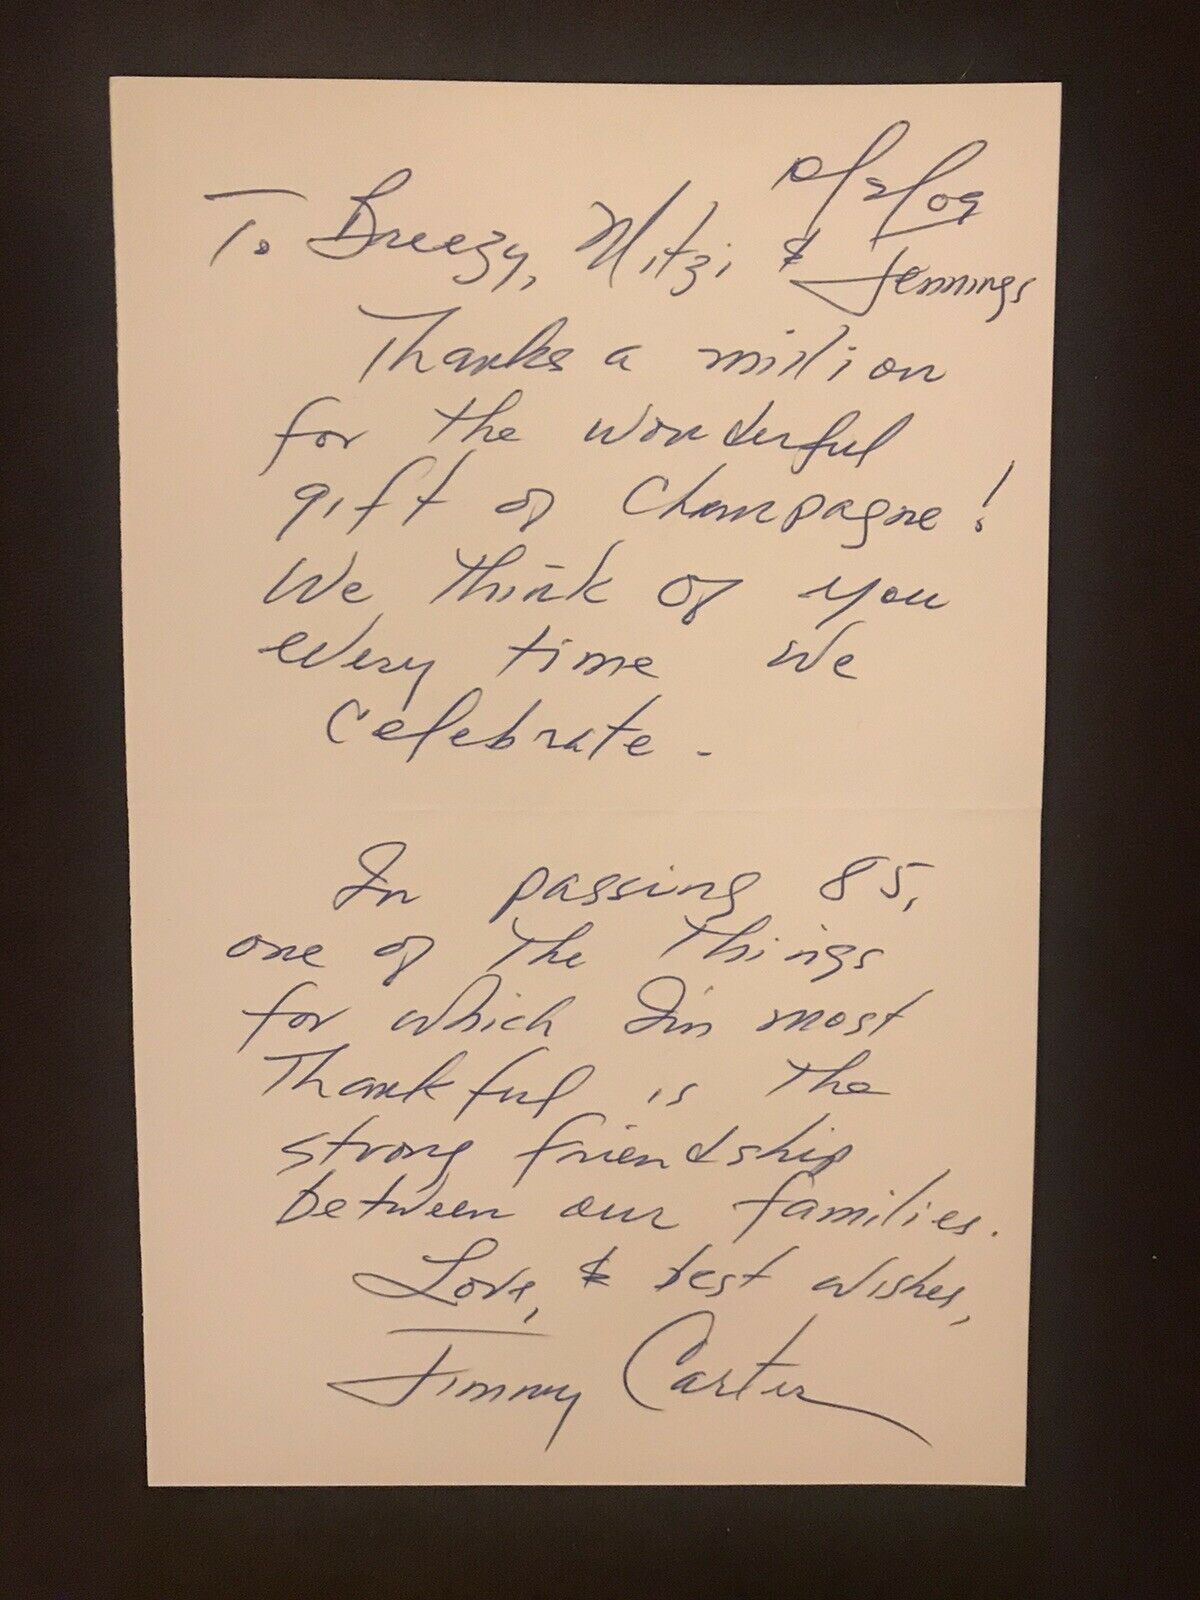 To Breezy, Mitzi & Jennings
Thanks a million
for the wonderful
gift of Champagne!
We think of you
every time we
celebrate -
In passing 85,
one of the things
for which I'm most
thankful is the
strong friendship
between our families.
Love, & best wishes,
Jimmy Carter